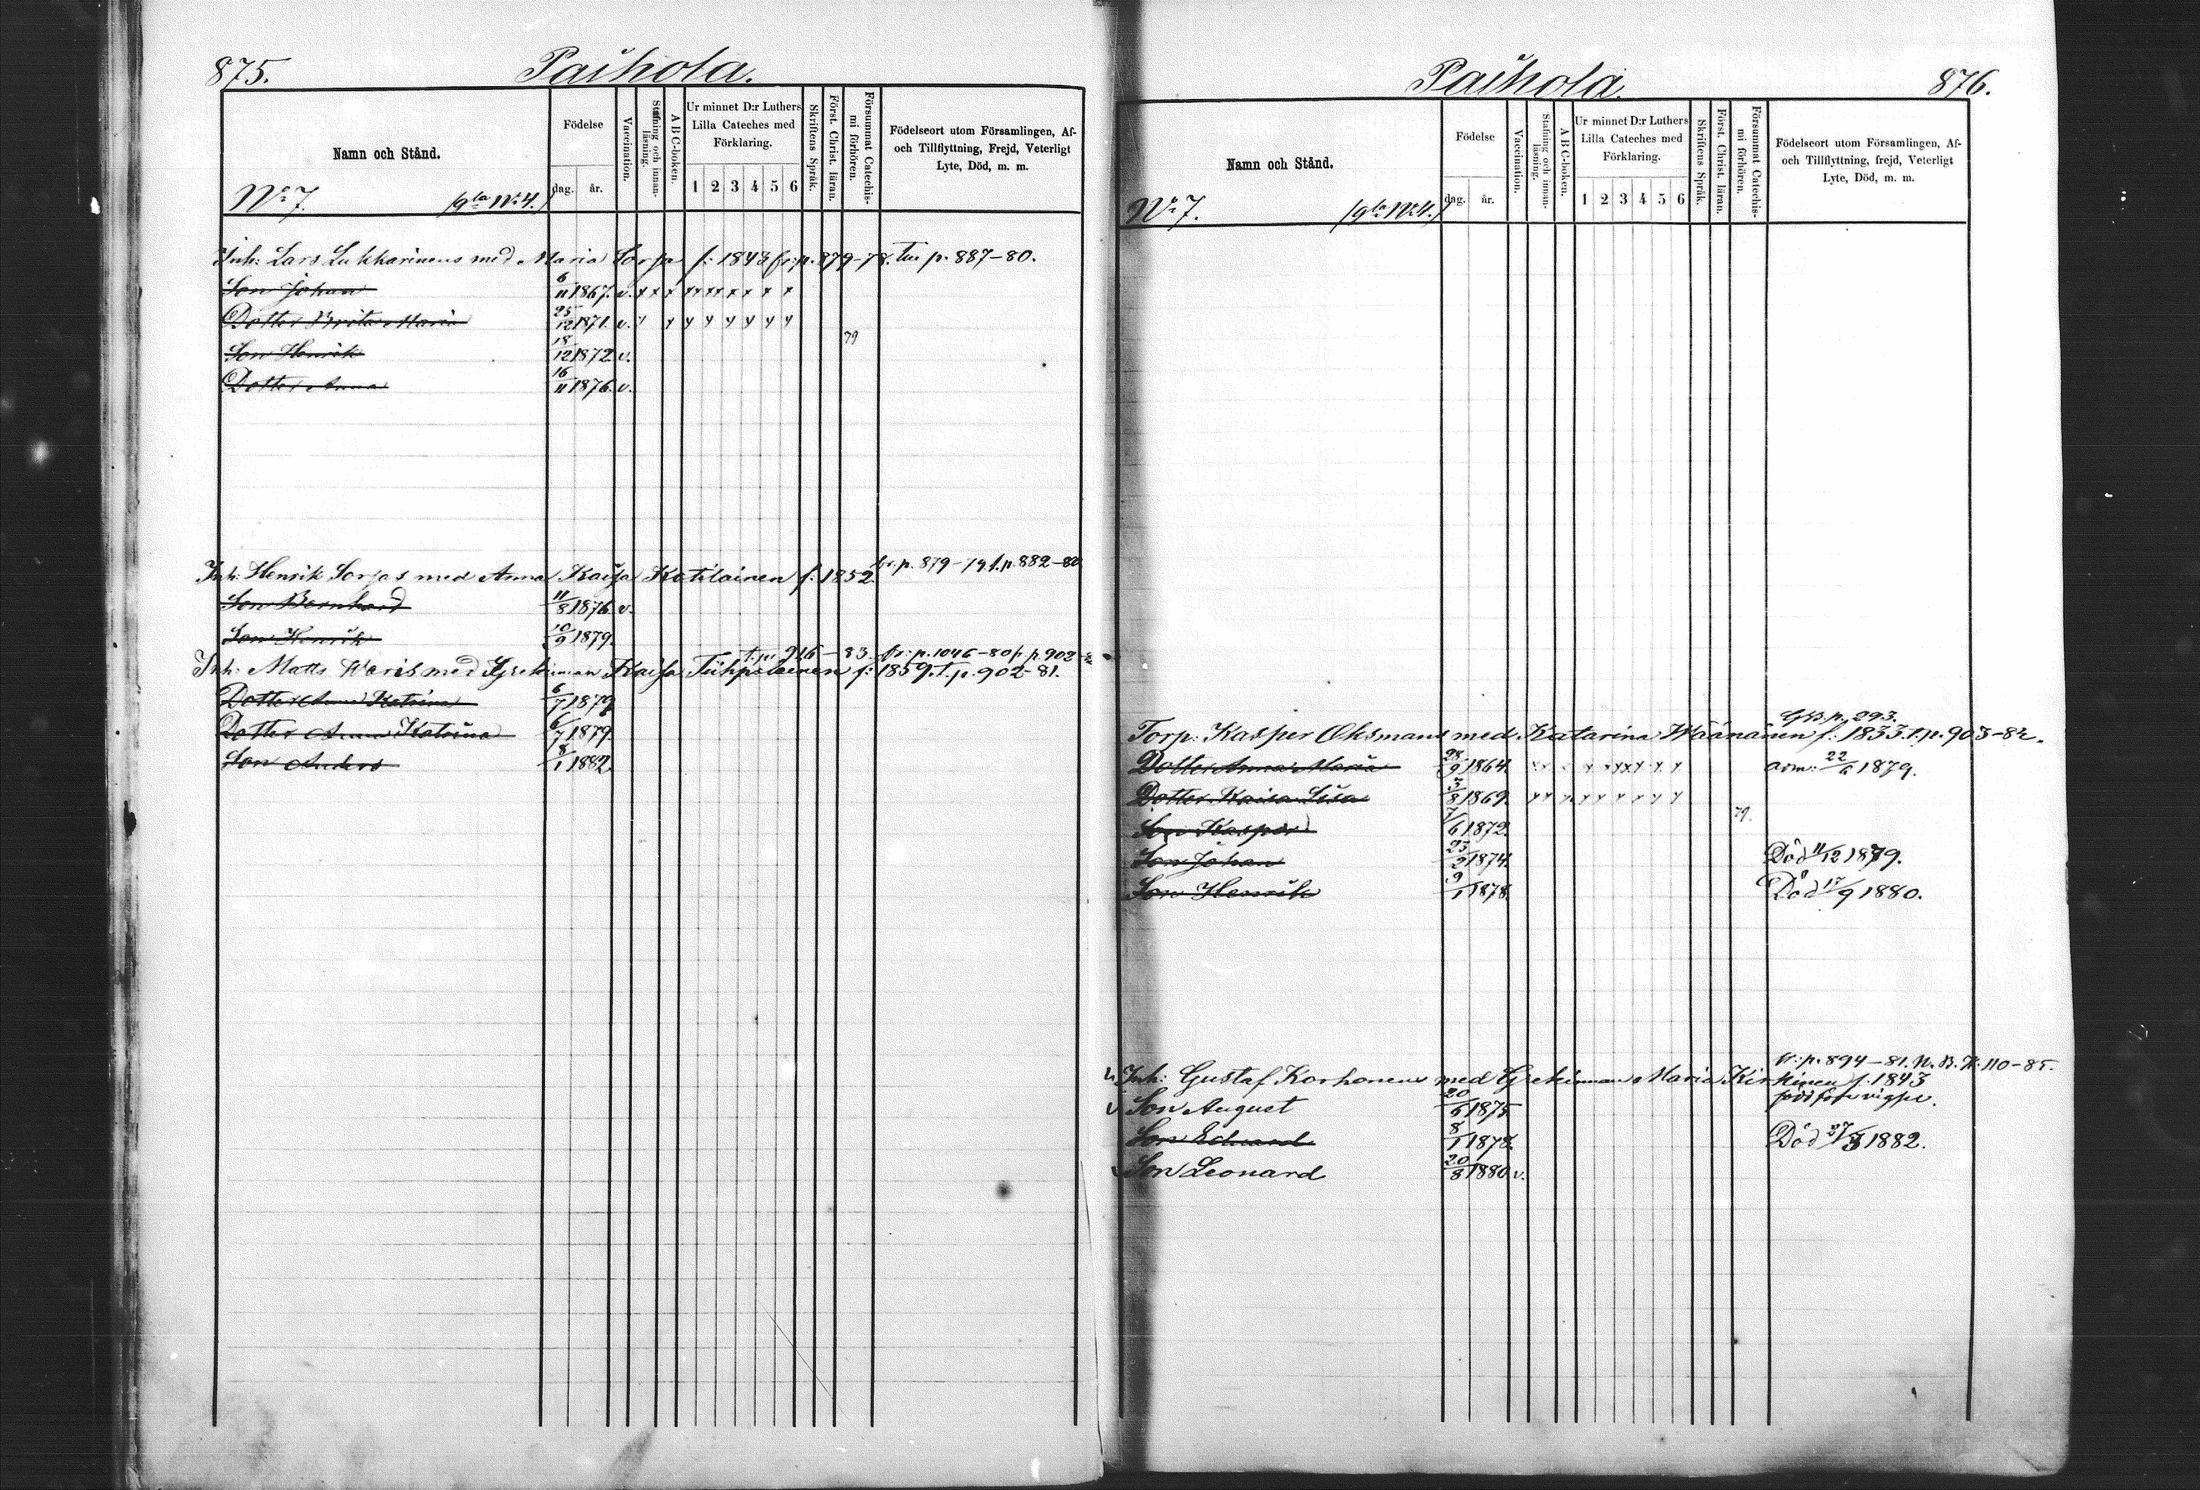 875.
Paihola.
Namn och Stånd.
Födelse
dag.
år.
Vaccination.
Stafning och innan-
läsning.
A B C-boken.
Ur minnet D:r Luthers
Lilla Cateches med
Förklaring.
1 2 3 4 5 6
Skriftens Språk.
Först. Christ. läran.
Försummat Catechis-
mi förhören.
Födelseort utom Församlingen, Af-
och Tillflyttning, Frejd, Veterligt
Lyte, Död, m. m.
No 7.
(gla No 4.)
Inh: Lars Lukkarinens med Maria Sorsa f: 1843 fr: p. 879-78. Tu p. 887-80.
Son Johan 6/11 1867. v. x x x x x x x x x x
Dotter Brita Maria 25/12 1871. v.
79
Son Henrik 18/12 1872. v.
Dotter Anna 16/11 1876. v.
fr. p. 879-79 t. p. 882-80
Inh: Henrik Sorsas med Anna Kaisa Kotilainen f: 1852.
Son Bernhard 11/8 1876. v.
Son Henrik 10/9 1879.
t. p. 916-83. fr: p. 1046-80 p. 902-
Inh: Matts Waris med Grekinnan Kaisa f: 1859. t. p. 902-81.
Dotter Anna Katrina 6/7 1879
Dotter Anna Katrina 6/7 1879.
Son Anders 8/1 1882.
Paihola.
876.
Namn och Stånd.
Födelse
dag.
år.
Vaccination.
Stafning och innan-
läsning.
A B C-boken.
Ur minnet D:r Luthers
Lilla Cateches med
Förklaring.
1 2 3 4 5 6
Skriftens Språk.
Först. Christ. läran.
Försummat Catechis-
mi förhören.
Födelseort utom Församlingen, Af-
och Tillflyttning, frejd, Veterligt
Lyte, Död, m. m.
No 7.
(gla No 4.)
p. 293.
Torp: Kasper Oksmans med Katarina Wäänänen f: 1833. t. p. 903-82.
Dotter Anna Maria 28/9 1864. 22/6 1879.
Dotter Kaisa Lisa 3/8 1869.
79.
Son Kasper 7/6 1872.
Son Johan 23/2 1874. Död 11/12 1879.
Son Henrik 9/1 1878. Död 17/9 1880.
fr: p. 894-81. N. B. K: 110-85.
Inh: Gustaf Korhonens med Grekinnan Maria Kirkinen f. 1843
Son August 20/5 1875 född före vigse.
Son Eduard 8/1 1878. Död 27/3 1882.
Son Leonard 20/8 1880 v.